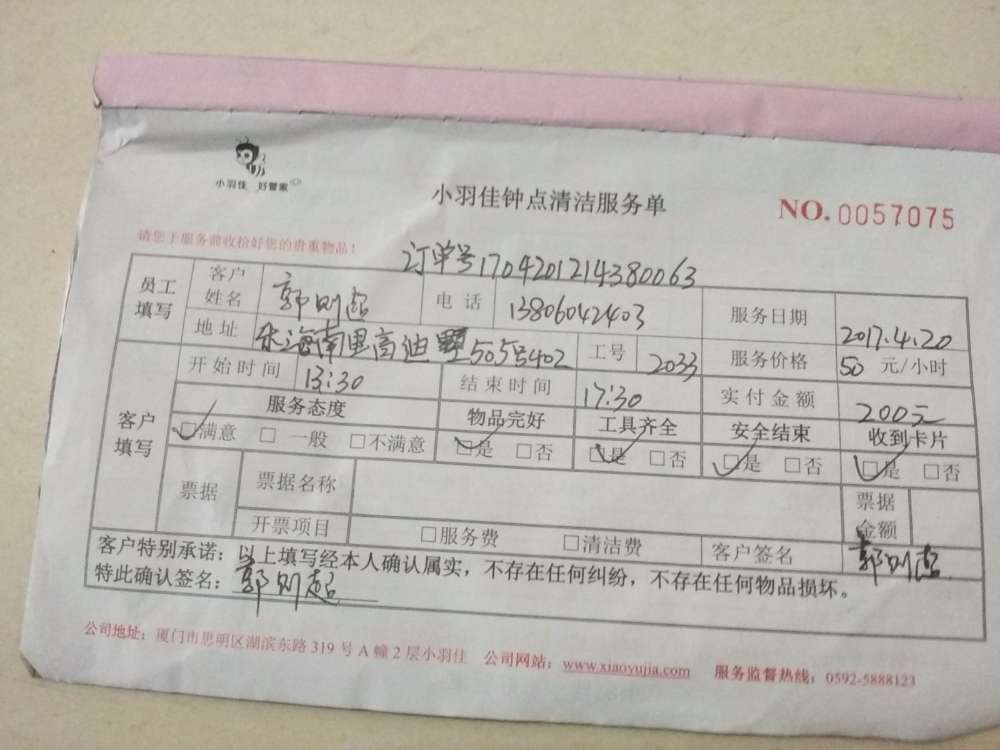 小羽佳 好管家
小羽佳钟点清洁服务单 NO.0057075
请您于服务前收拾好您的贵重物品!
订单号1704201214380063
员工填写 客户姓名 郭则超 电话 13806042403 服务日期 2017.4.20
地址 东海南里高迪墅505号402 工号 2033 服务价格 50 元/小时
客户填写 开始时间 13:30 结束时间 17:30 实付金额 200元
服务态度 物品完好 工具齐全 安全结束 收到卡片
☑满意 □一般 □不满意 ☑是 □否 ☑是 □否 ☑是 □否 ☑是 □否
票据 票据名称 票据金额
开票项目 □服务费 □清洁费 客户签名 郭则超
客户特别承诺:以上填写经本人确认属实,不存在任何纠纷,不存在任何物品损坏。
特此确认签名:郭则超
公司地址:厦门市思明区湖滨东路319号A幢2层小羽佳 公司网站:www.xiaoyujia.com 服务监督热线:0592-5888123